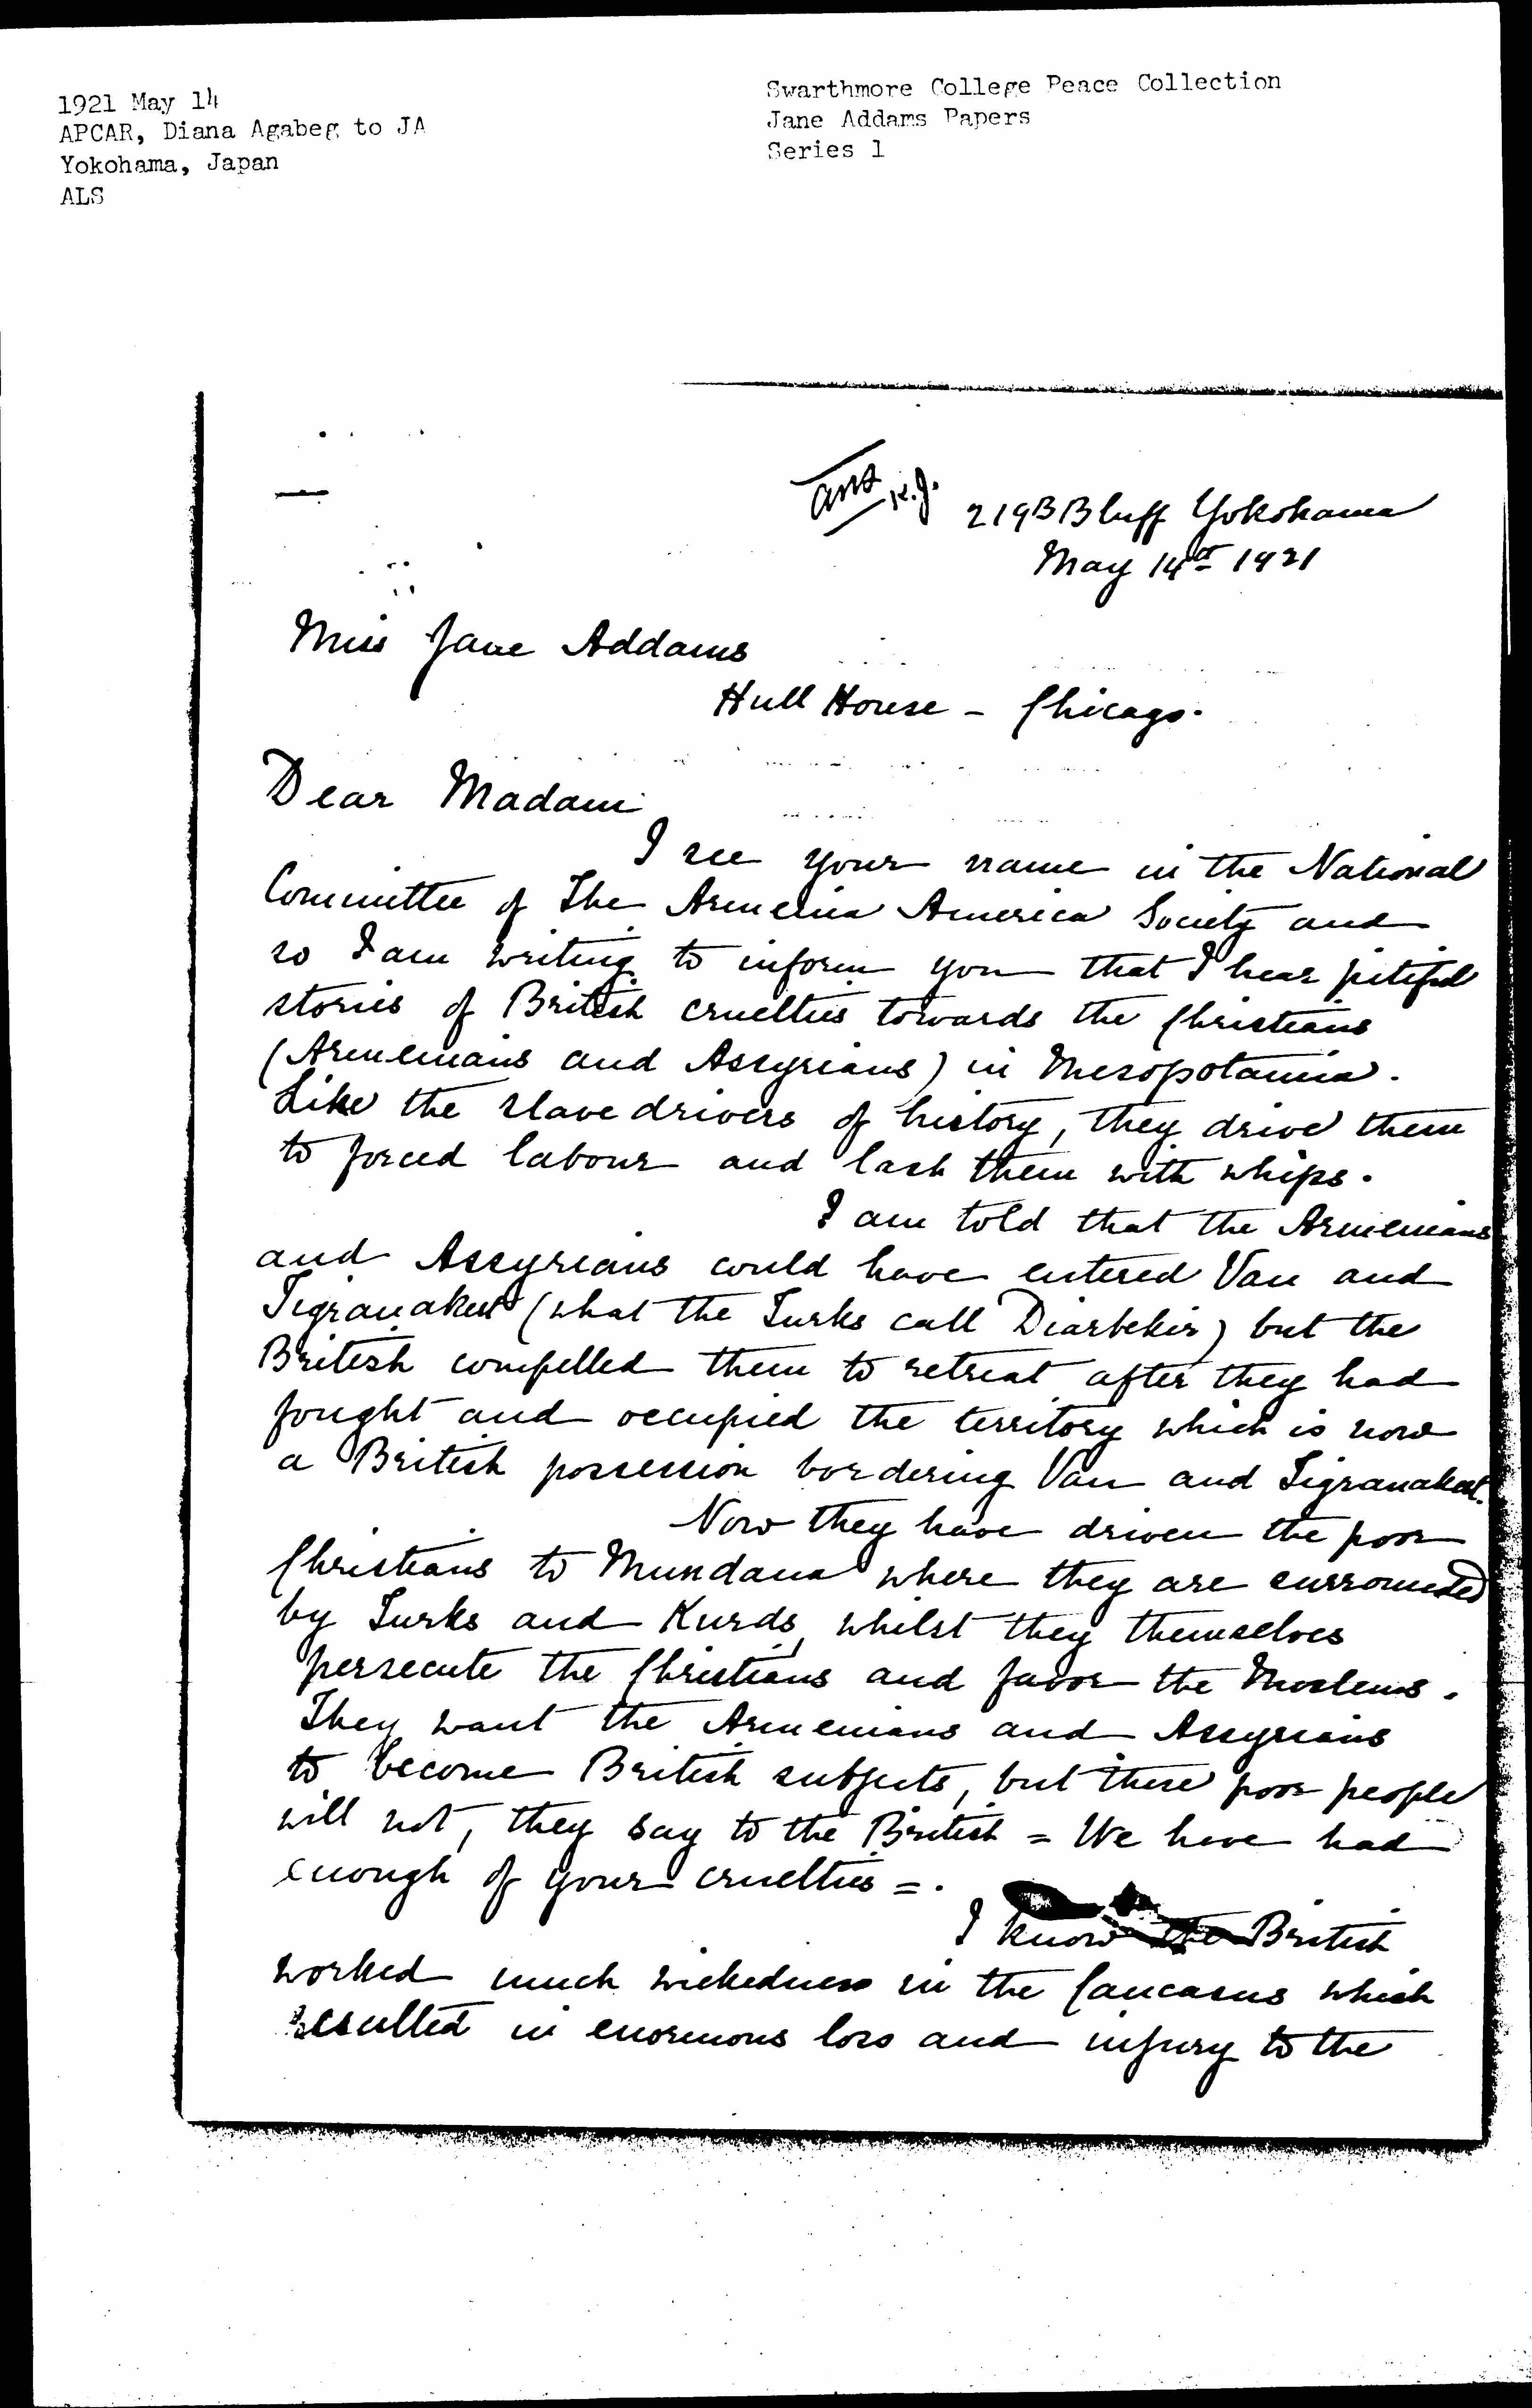 1921 May 14
APCAR, Diana Agabeg to JA
Yokohama, Japan
ALS
Swarthmore College Peace Collection
Jane Addams Papers
Series 1
ans
219B Bluff Yokohama
May 14th 1921
Miss Jane Addams
Hull House - Chicago.
Dear Madam
I see your name in the National
Committee of The Armenia America Society and
so I am writing to inform you that I hear pitiful
stories of British cruelties towards the Christians
(Armenians and Assyrians) in Mesopotamia.
Like the slave drivers of history, they drive them
to forced labour and lash them with whips.
I am told that the Armenians
and Assyrians could have entered Van and
Tigranakert (what the Turks call Diarbekir) but the
British compelled them to retreat after they had
fought and occupied the territory which is now
a British possession bordering Van and Tigranakert.
Now they have driven the poor
Christians to Mundana where they are surrounded
by Turks and Kurds, whilst they themselves
persecute the Christians and favor the Moslems.
They want the Armenians and Assyrians
to become British subjects, but these poor people
will not, they say to the British = We have had
enough of your cruelties =.
I know the British
worked much wickedness in the Caucasus which
resulted in enormous loss and injury to the